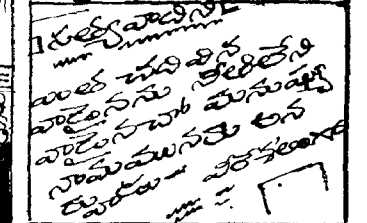 సత్యవాదిని
ఎంత చదివిన
వాడైనను నీతిలేని
వాడైనచో మనుష్య
నామమునకు అన
ర్హుడు - వీరేశలింగం